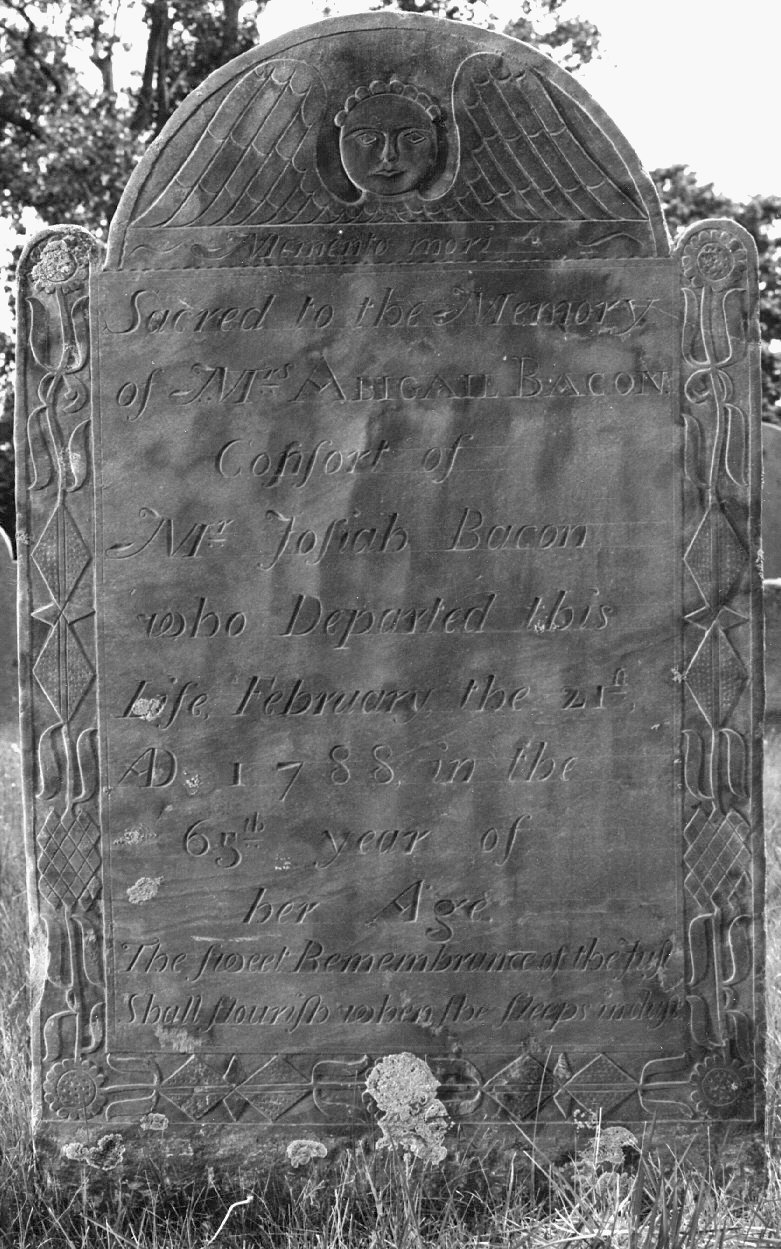 Memento mori
Sacred to the Memory
of Mrs ABIGAIL BACON
Conſort of
Mr Joſiah Bacon
who Departed this
Life, February the 21ſt,
AD. 1788, in the
65th year of
her Age.
The ſweet Remembrance of the Juſt
Shall flouriſh when ſhe ſleeps in duſt